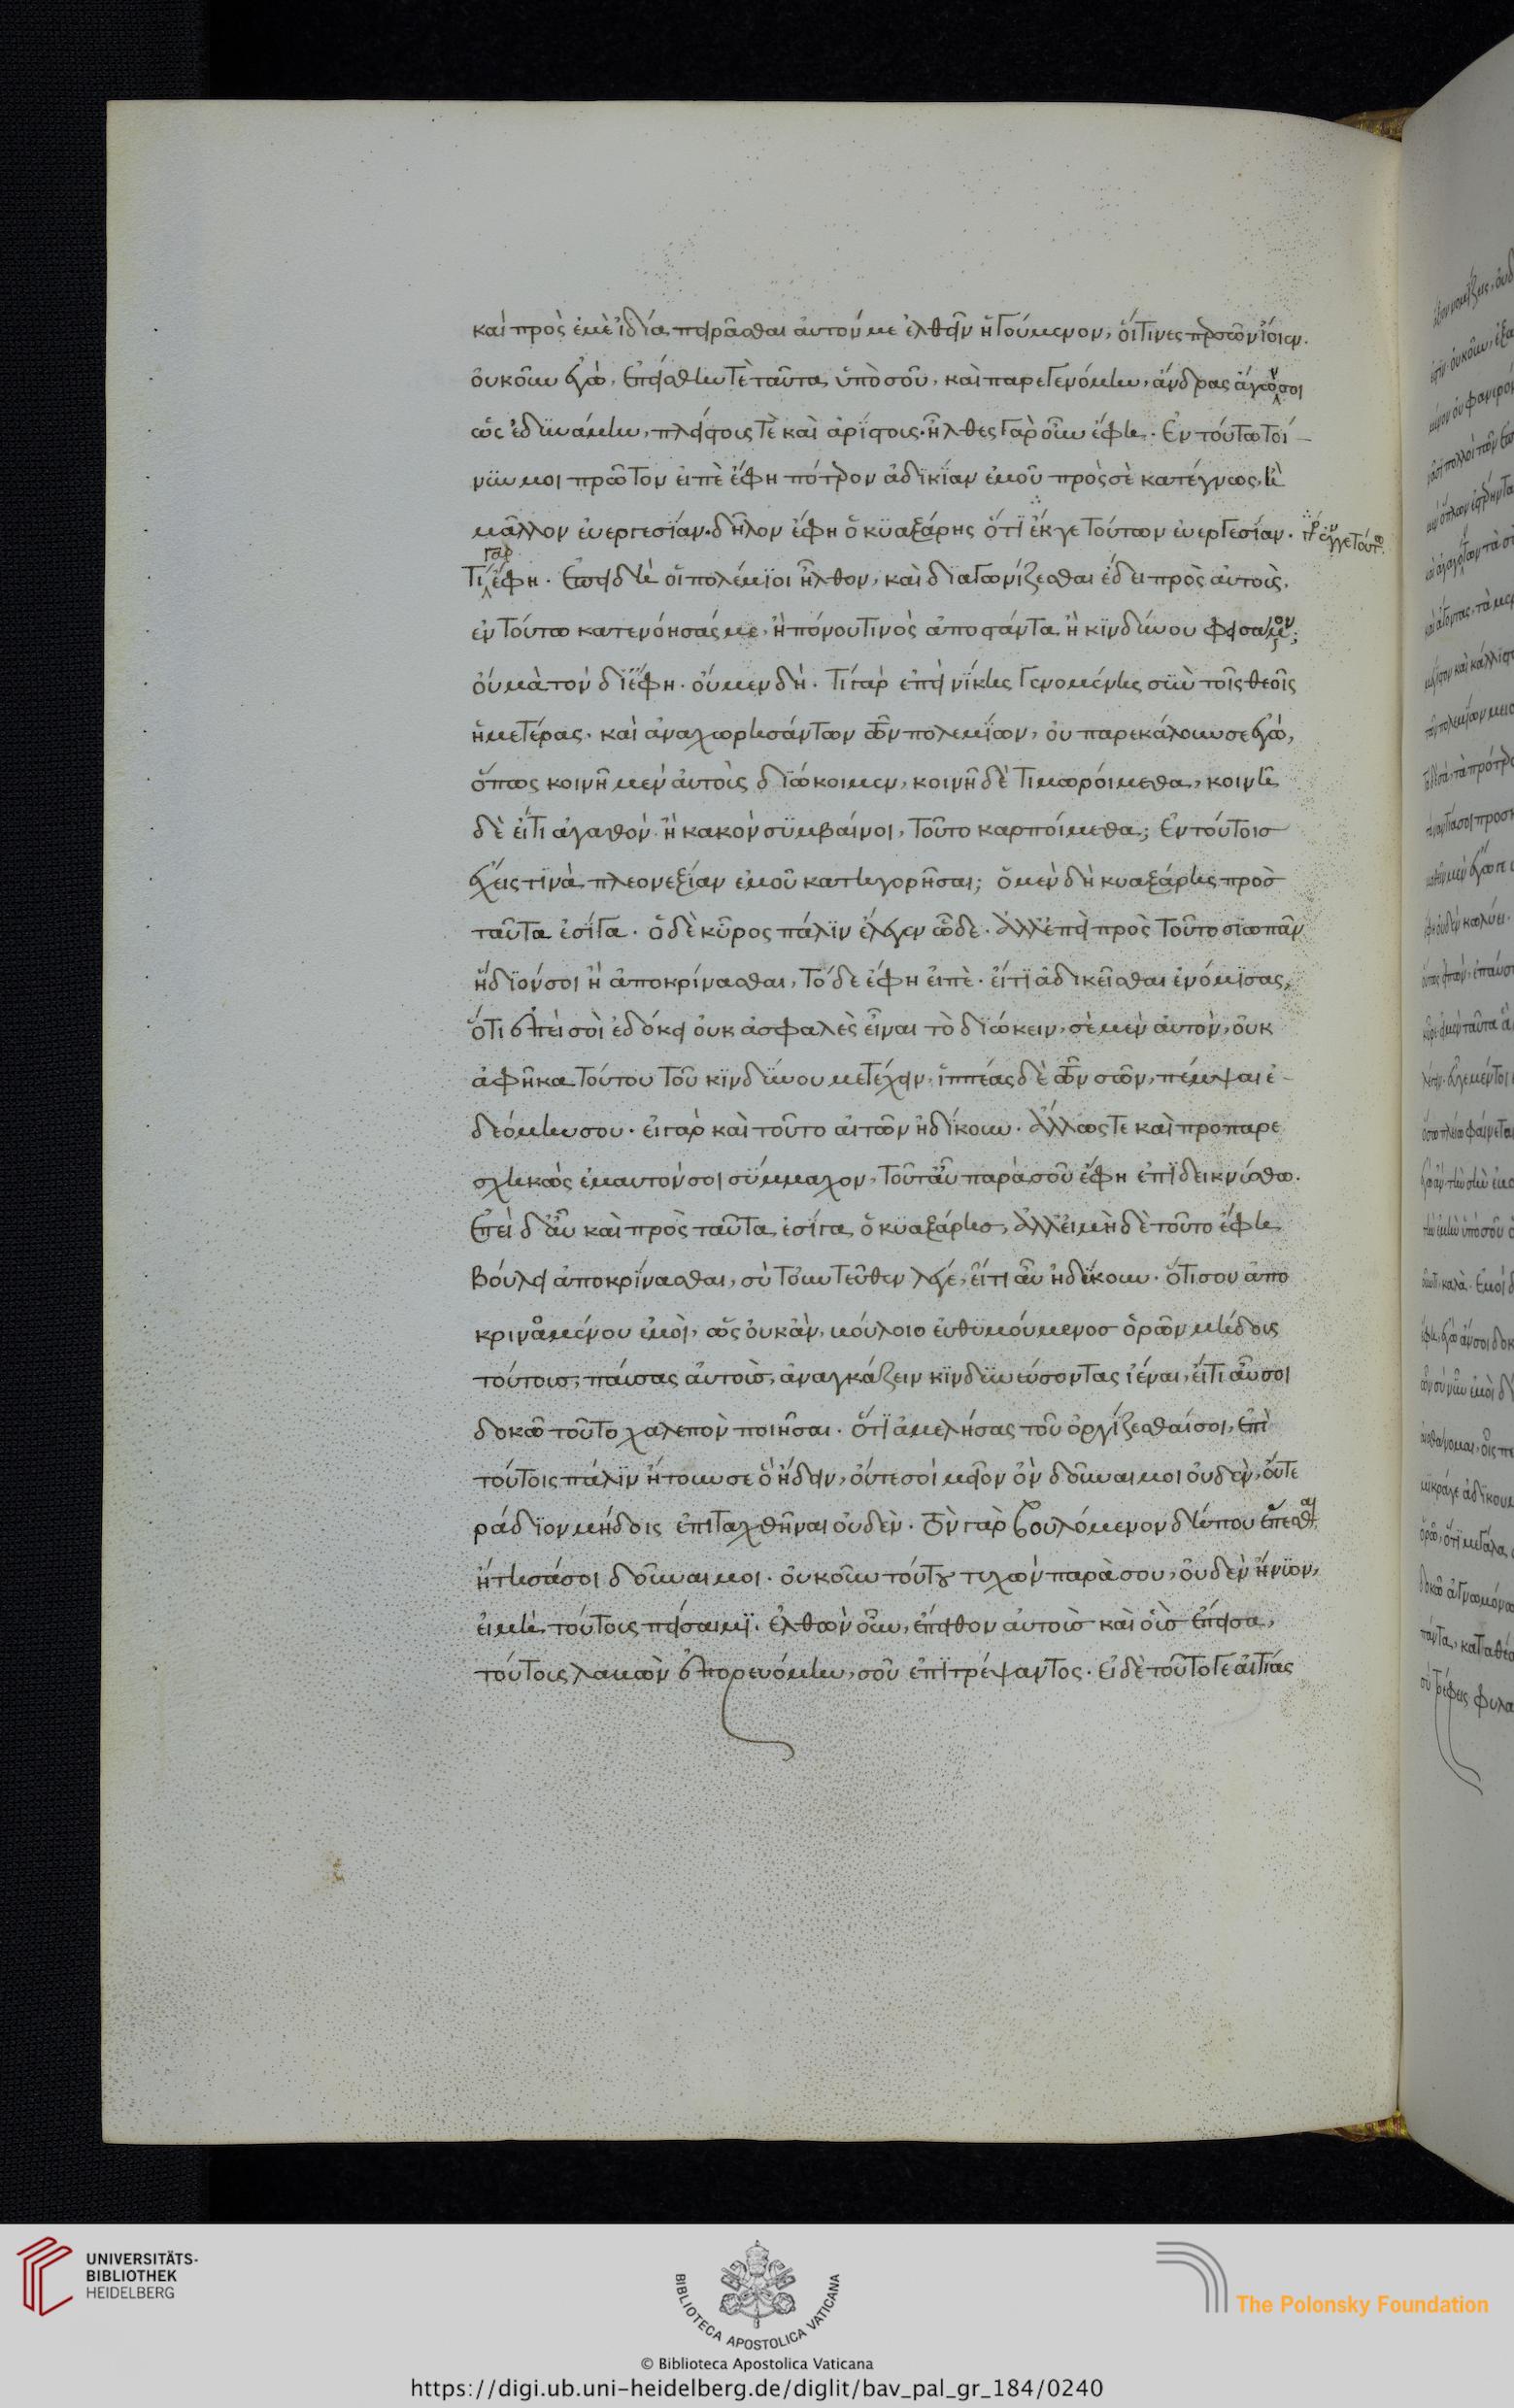 καὶ πρὸς ἐμὲ ἰδία πειρᾶσθαι αὐτόν με ἐλθεῖν ἡγούμενον, οἵτινες προσῶν ἴοιεν.
οὐκοῦν ἐγὼ, ἐπείσθην τὲ ταῦτα ὑπὸ σοῦ, καὶ παρεγενόμην, ἄνδρας ἄγων σοι
ὡς ἐδυνάμην, πλείστοις τὲ καὶ ἀρίστοις. ἦλθες γὰρ οὖν ἔφη. Ἐν τούτω τοί-
νυν μοι πρῶτον εἰπὲ ἔφη πότερον ἀδικίαν ἐμοῦ πρὸς σὲ κατέγνως, ἢ
μᾶλλον ἐυεργεσίαν. δῆλον ἔφη ὁ κυαξάρης ὅτι ἔκ γε τούτων ἐυεργεσίαν.
ἔν γε τούτω.
Τί γὰρ ἔφη. Ἐπειδὴ οἱ πολέμιοι ἦλθον, καὶ διαγωνίζεσθαι ἔδει πρὸς αὐτοὺς,
ἐν τούτω κατενόησάς με, ἢ πόνου τινὸς ἀποστάντα ἢ κινδύνου φεισάμενον;
οὐ μὰ τὸν δί ἔφη. οὐ μεν δή. Τί γὰρ ἐπεὶ νίκης γενομένης σὺν τοῖς θεοῖς
ἡμετέρας. καὶ ἀναχωρησάντων τῶν πολεμίων, οὐ παρεκάλουν σε ἐγὼ,
ὅπως κοινῆ μεν αὐτοὺς διώκοιμεν, κοινῆ δὲ τιμωροίμεθα, κοινῆ
δὲ εἴ τι ἀγαθὸν ἢ κακὸν συμβαίνοι, τοῦτο καρποίμεθα; Ἐν τούτοις
ἔχεις τινὰ πλεονεξίαν ἐμοῦ κατηγορῆσαι; ὁ μὲν δὴ κυαξάρης πρὸς
ταῦτα ἐσίγα. ὁ δὲ κῦρος πάλιν ἔλεγεν ὧδε. Ἀλλ' ἐπεὶ πρὸς τοῦτο σιωπᾶν
ἥδιόν σοι ἢ ἀποκρίνασθαι, τό δε ἔφη εἰπὲ. εἴ τι ἀδικεῖσθαι ἐνόμισας,
ὅτι ἐπεί σοὶ ἐδόκει οὐκ ἀσφαλὲς εἶναι τὸ διώκειν, σὲ μεν αὐτὸν, οὐκ
ἀφῆκα τούτου τοῦ κινδύνου μετέχειν, ἱππέας δὲ τῶν σῶν, πέμψαι ἐ-
δεόμην σου. εἰ γὰρ καὶ τοῦτο αἰτῶν ἠδίκουν. Ἄλλως τε καὶ προπαρε
σχηκὼς ἐμαυτόν σοι σύμμαχον, τοῦτ' αὖ παρὰ σοῦ ἔφη ἐπιδεικνύσθω.
Ἐπεὶ δ' αὖ καὶ πρὸς ταῦτα ἐσίγα ὁ κυαξάρης, ἀλλ' εἰ μὴ δὲ τοῦτο ἔφη
βούλει ἀποκρίνασθαι, σὺ τοὐντεῦθεν λέγε, εἴ τι αὖ ἠδίκουν. ὅτι σου ἀπο
κριναμένου ἐμοὶ, ὡς οὐκ ἂν, βούλοιο ἐυθυμούμενος ὁρῶν μήδοις
τούτοις, παύσας αὐτοὺς, ἀναγκάζειν κινδυνεύσοντας ἰέναι, εἴ τι αὖ σοι
δοκῶ τοῦτο χαλεπὸν ποιῆσαι. ὅτι ἀμελήσας τοῦ ὀργίζεσθαί σοι, ἐπὶ
τούτοις πάλιν ἤτουν σε ὃ ἤδειν, οὔτε σοί μεῖον ὂν δοῦναι μοι οὐδὲν, οὔτε
ράδιον μήδοις ἐπιταχθῆναι οὐδὲν. Τὸν γὰρ βουλόμενον δήπου ἕπεσθαι
ἤτησά σοι δοῦναι μοι. οὐκοῦν τούτου τυχὼν παρὰ σου, οὐδὲν ἤνυον,
εἰ μὴ τούτοις πείσαιμι. ἐλθὼν οὖν, ἔπειθον αὐτοὺς καὶ οὓς ἔπεισα,
τούτοις λαβὼν ἐπορευόμην, σοῦ ἐπιτρέψαντος. εἰ δὲ τοῦτό γε αἰτίας
UNIVERSITÄTS-
BIBLIOTHEK
HEIDELBERG
BIBLIOTECA APOSTOLICA VATICANA
The Polonsky Foundation
© Biblioteca Apostolica Vaticana
https://digi.ub.uni-heidelberg.de/diglit/bav_pal_gr_184/0240